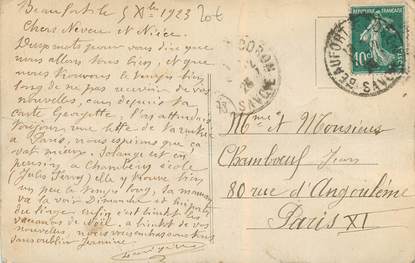 Beaufort le 5 Xbre 1923
Chers Neveu et Nièce
Deux mots pour vous dire que
nous allons tous bien, et que
nous trouvons le temps bien
long de ne pas recevoir de vos
nouvelles, depuis la
carte Georgette.
toujours une lettre de
à Paris, nous espérons que ça
va mieux. Solange est en
pension à Chambéry école
(Jules Ferry) elle y trouve bien
un peu le temps long, sa maman
va la voir Dimanche et lui porter
du linge enfin c'est bientôt les
vacances de Noël. à bientôt de vos
nouvelles, nous vous embrassons tous
sans oublier Jeannine
REPUBLIQUE FRANÇAISE
10c
BEAUFORT
SAVOIE
SAVOIE
Mme et Monsieur
Chambœuf Jean
80 rue d'Angoulême
Paris XI